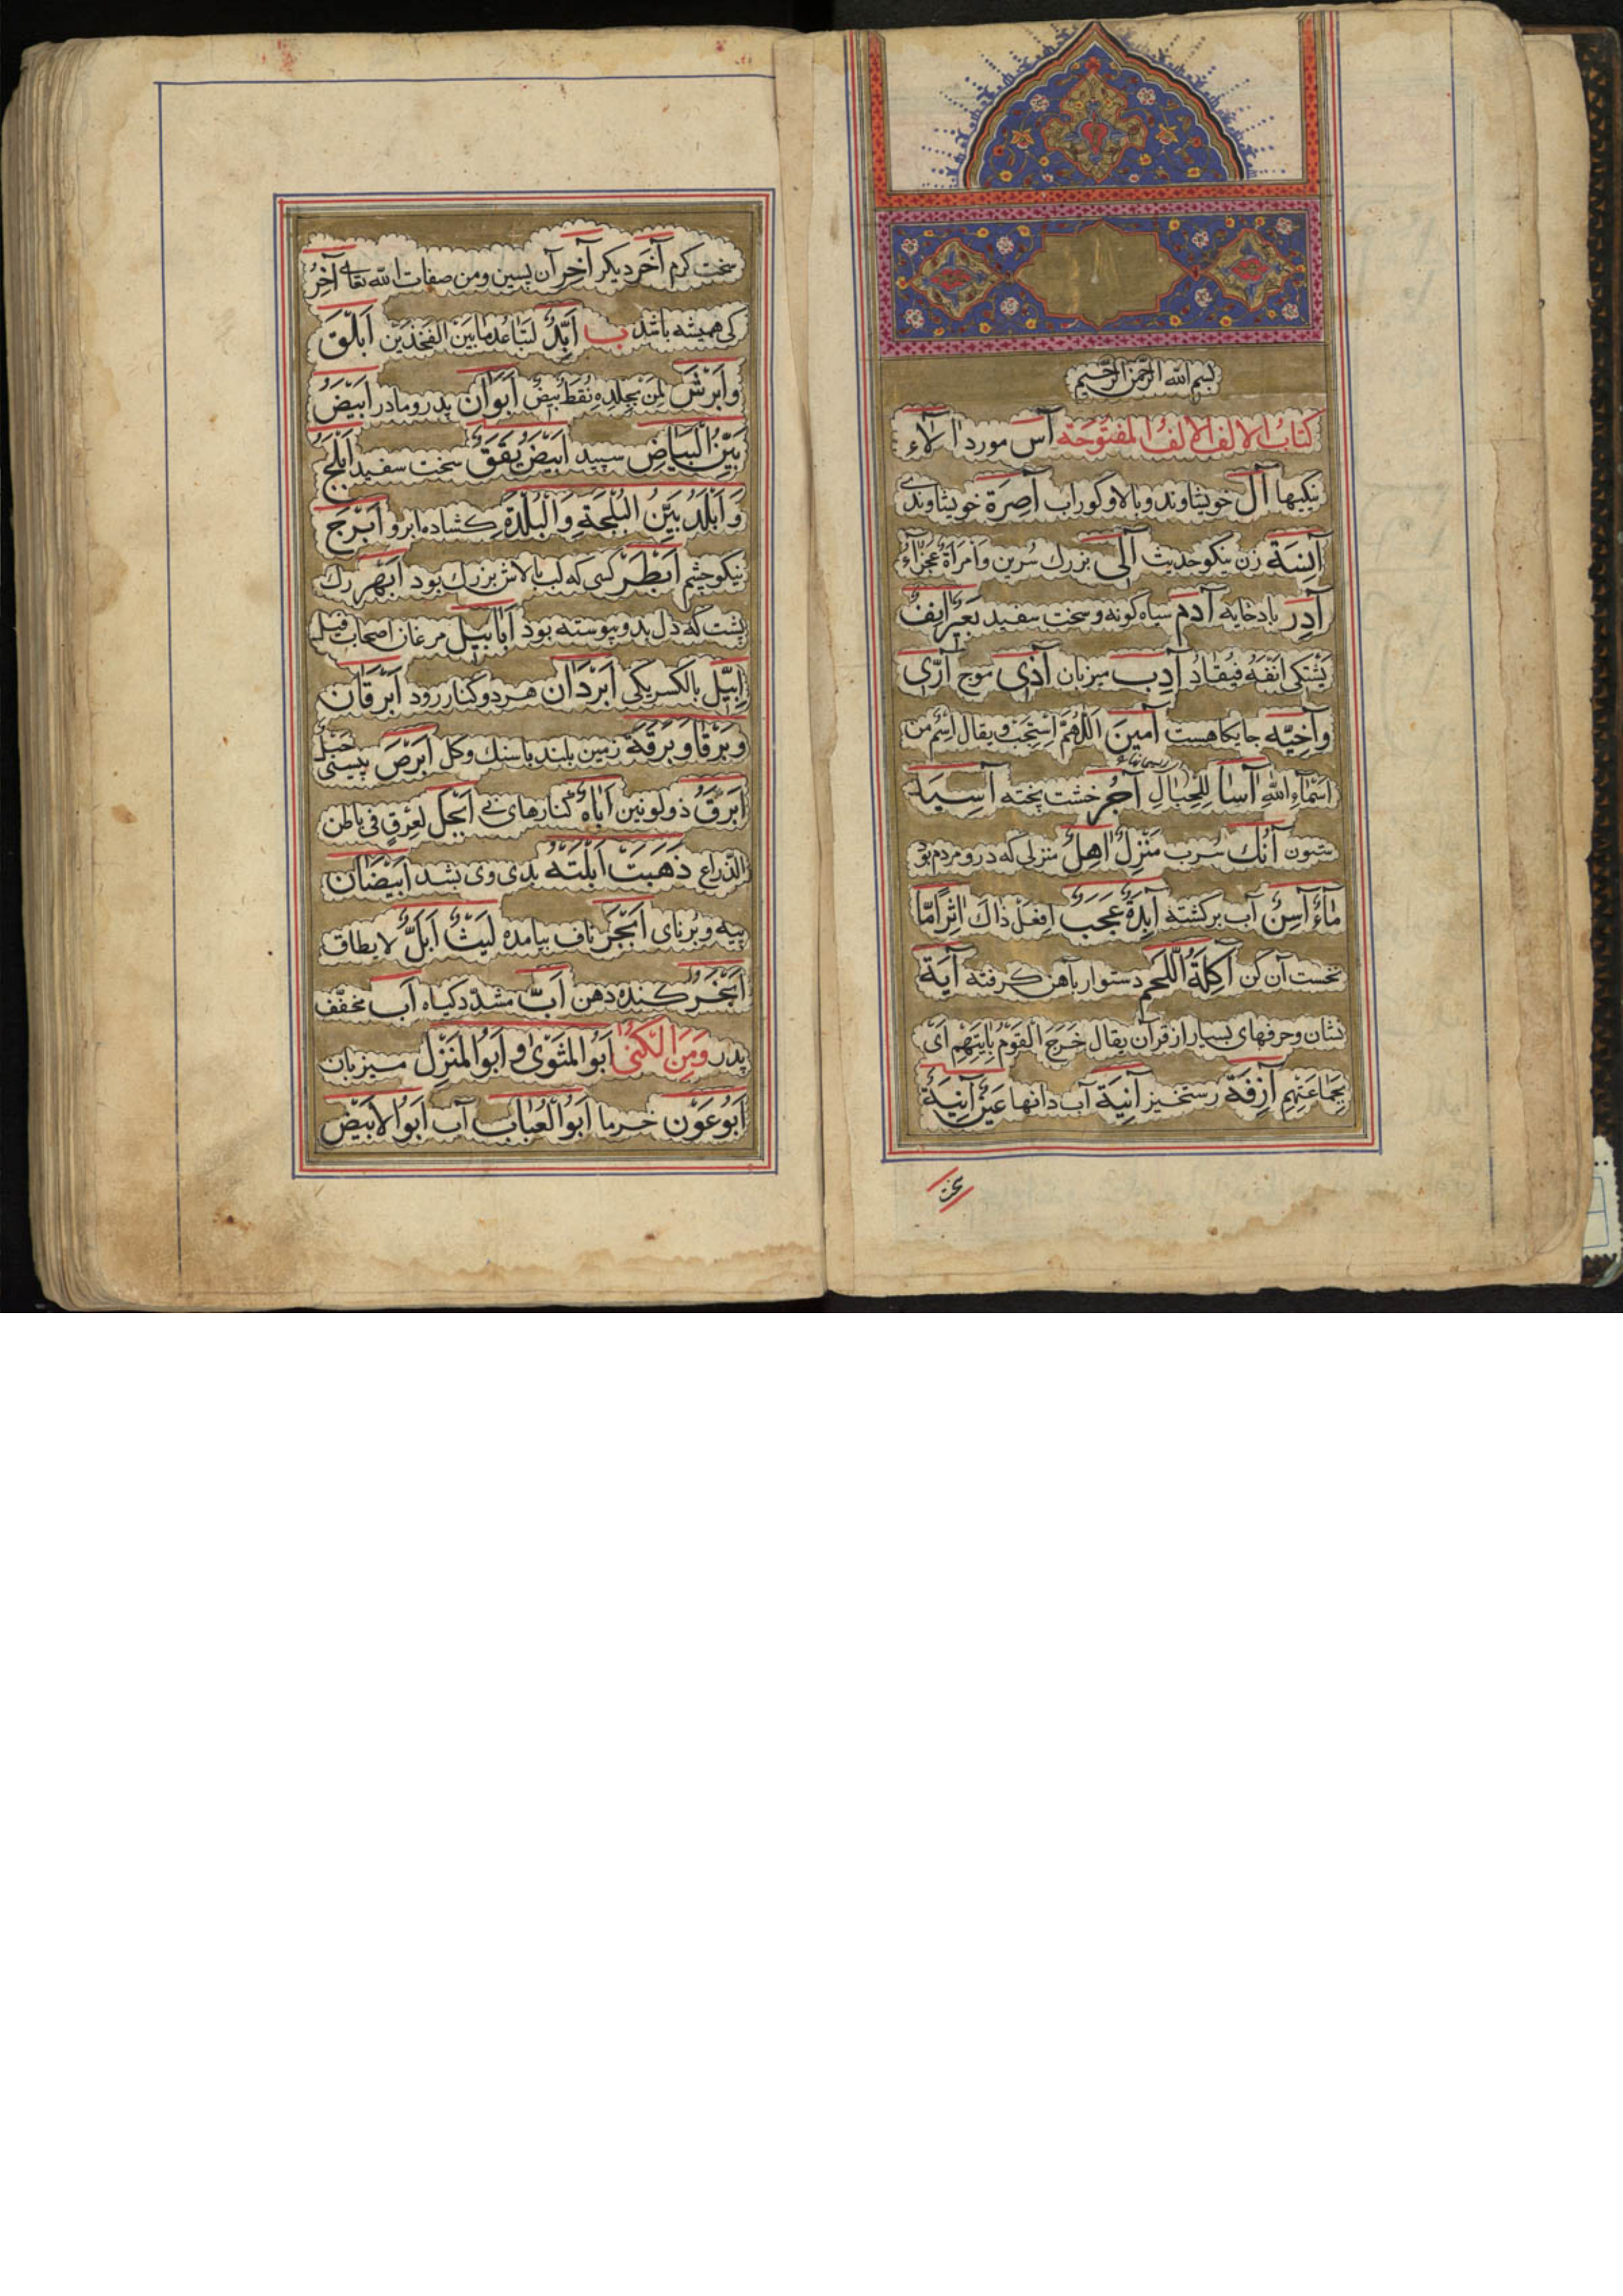 بسم الله الرحمن الرحیم
كتابُ الالف الالفُ المفتوحَة آس مورد آلاء
نیکیها آل خویشاوند وبالا وکوراب آصِرَة خویشاوندی
آنِسَة زن نیکو حدیث آلَی بزرك سُرین وَامرَأةٌ عَجْزَآءُ
آدِر بادخایه آدَم سیاه کونه و سخت سفید بَعیرٌ انِفٌ
یَشتَکی اَنفَهُ فیُقادُ آدِب میزبان آذی موج آرّی
وآخِیّه جایکاهست آمین اَللّهُمَّ اِسْتَجِبْ و یقال اِسْمٌ من
اَسْمآءِ اللهِ آسا لِلحِبالِ آجُر خشت پخته آسِیَة
ستون آنُك سُرب مَنْزِلٌ آهِلٌ منزلی که درو مردم بود
مآءٌ آسِنٌ آب برکشته آبِدَةٌ عَجَبٌ اِفعَلْ ذاكَ آثِرًا مّا
نخست آن کن آكِلَةُ اللَّحم دستوار بآهن کرفته آیَة
نشان وحرفهای بسیار از قرآن یقال خَرَجَ القَوْمُ بِآیَتِهِمْ اَیْ
بِجَماعَتِهِم آزِفَة رستخیز آنِیَة آب دانها عَیْنٌ آنِیَةٌ
سخت
سخت کرم آخَر دیکر آخِر آن پسین ومن صفات الله تعالی آخِرُ
کی همیشه باشد ب اَبَدُّ لتَباعُدِ مابَیْنَ الفَخْذَیْن اَبْلَق
وَاَبْرَش لِمَن بِجِلدِهِ نُقَطٌ بیضٌ اَبَوان پدر ومادر اَبیَضُ
بَیِّنُ الْبَیاضِ سپید اَبْیَضُ یَقَقٌ سخت سفید اَبْلَجُ
وَاَبْلَدُ بَیِّنُ البُلجَةِ وَالْبُلْدَةِ کشاده ابرو اَبْرَج
نیکو چشم اَبْظَر کسی که لب بالاش بزرك بود اَبْهَر رك
پشت که دل بدو پیوسته بود اَبابیل مرغان اصحاب فیل
اِبِیّل بالکسر یکی اَبْرَدان هر دو کنار رود اَبْرَقان
وبَرْقا وبُرْقَة زمین بلند با سنك وکل اَبْرَص پیسی حَبْلٌ
اَبْرَقُ ذو لونین اَباءٌ کنارهای نی اَبْجَل لعِرْقٍ فی باطن
الذّراع ذَهَبَتْ اَبَلَتُه بدی وی بشد اَبْیَضان
پیه و برنای اَبْجَر ناف بیامده لَیثٌ اَبَلُّ لا یطاق
اَبْخَر کنده دهن اَبّ مشدّد کیاه اَب مخفّف
پدر وَمِنَ الكُنیٰ اَبُوالمَثْوٰی و اَبُوالمَنْزِل میزبان
اَبُوعَوْن خرما اَبُوالْعُباب آب اَبُوالْابْیَض